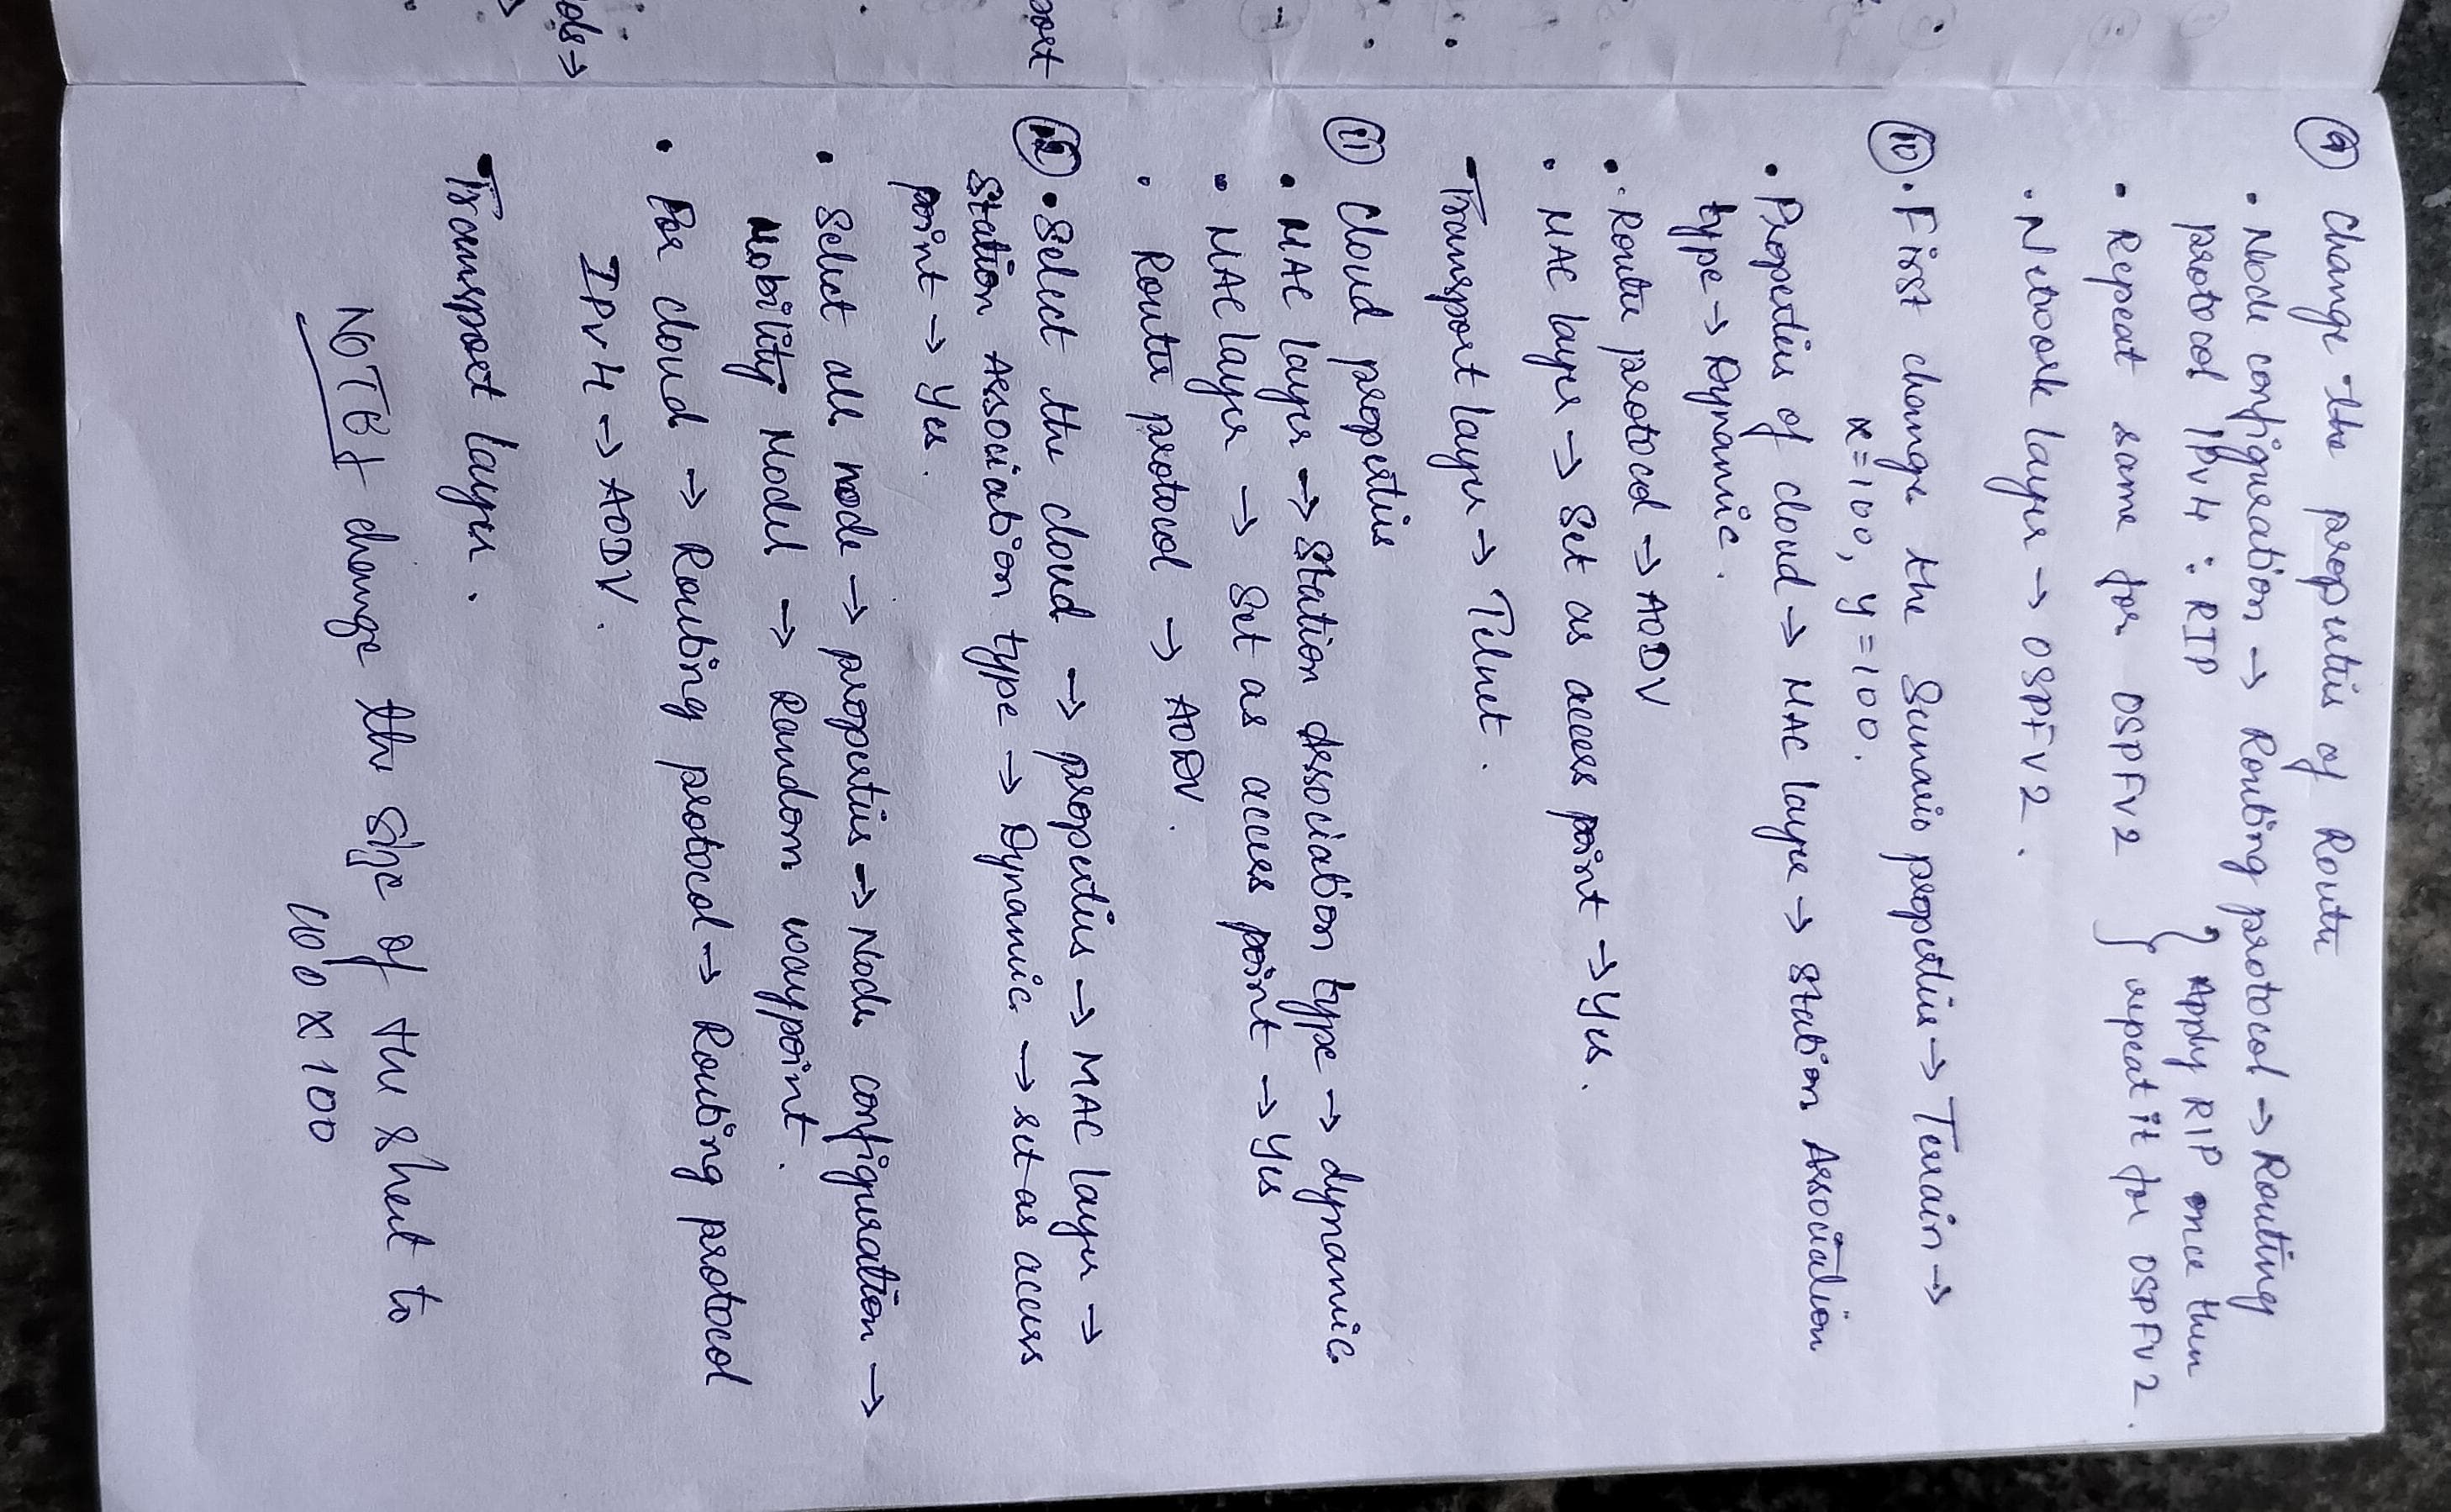 ods →
port
⑨ Change the properties of Route
• Node configuration → Routing protocol → Routing
protocol IPv4 : RIP } Apply RIP once then
• Repeat same for OSPFv2 } repeat it for OSPFv2.
• Network layer → OSPFv2.
⑩ • First change the Scenario properties → Terrain →
x=100, y=100.
• Properties of cloud → MAC layer → Station Association
type → Dynamic.
• Route protocol → AODV
• MAC layer → Set as access point → Yes.
• Transport layer → Telnet.
⑪ Cloud properties
• MAC layer → Station Association type → dynamic
• MAC layer → Set as access point → Yes
• Route protocol → AODV.
⑫ • Select the cloud → properties → MAC layer →
Station Association type → Dynamic → set as access
point → Yes.
• Select all node → properties → Node configuration →
Mobility Model → Random waypoint.
• For cloud → Routing protocol → Routing protocol
IPv4 → AODV.
• Transport layer.
NOTE: change the size of the sheet to
100 x 100